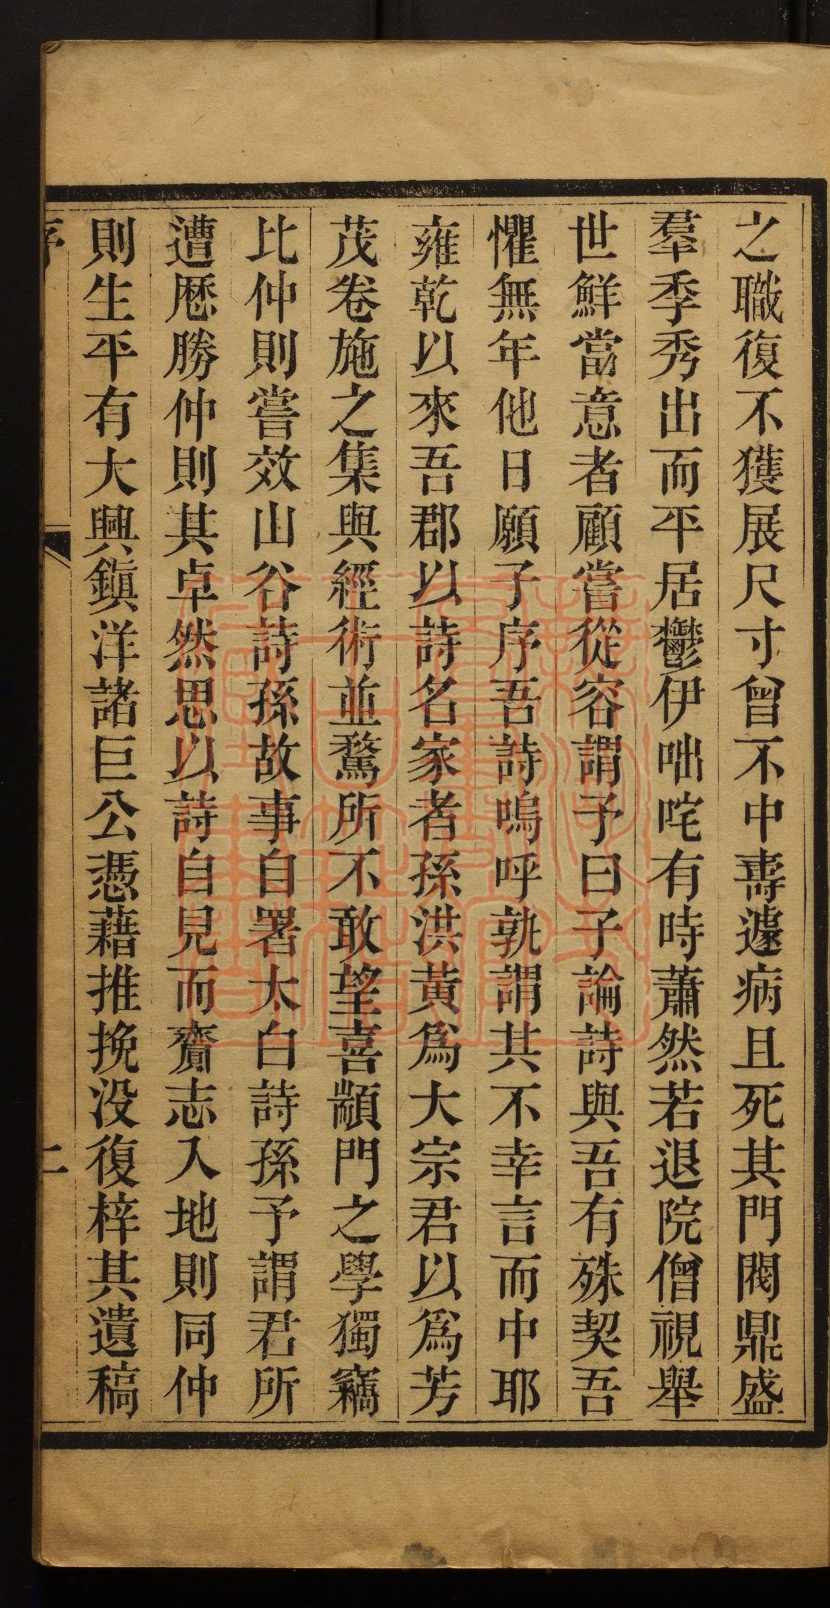 之職復不獲展尺寸曾不中壽遽病且死其門閥鼎盛
羣季秀出而平居鬱伊咄咤有時蕭然若退院僧視舉
世鮮當意者顧嘗從容謂予曰子論詩與吾有殊契吾
懼無年他日願子序吾詩嗚呼孰謂其不幸言而中耶
雍乾以來吾郡以詩名家者孫洪黃爲大宗君以爲芳
茂卷施之集與經術並騖所不敢望喜顓門之學獨竊
比仲則嘗效山谷詩孫故事自署太白詩孫予謂君所
遭歷勝仲則其卓然思以詩自見而賫志入地則同仲
則生平有大興鎭洋諸巨公憑藉推挽没復梓其遺稿
序
二